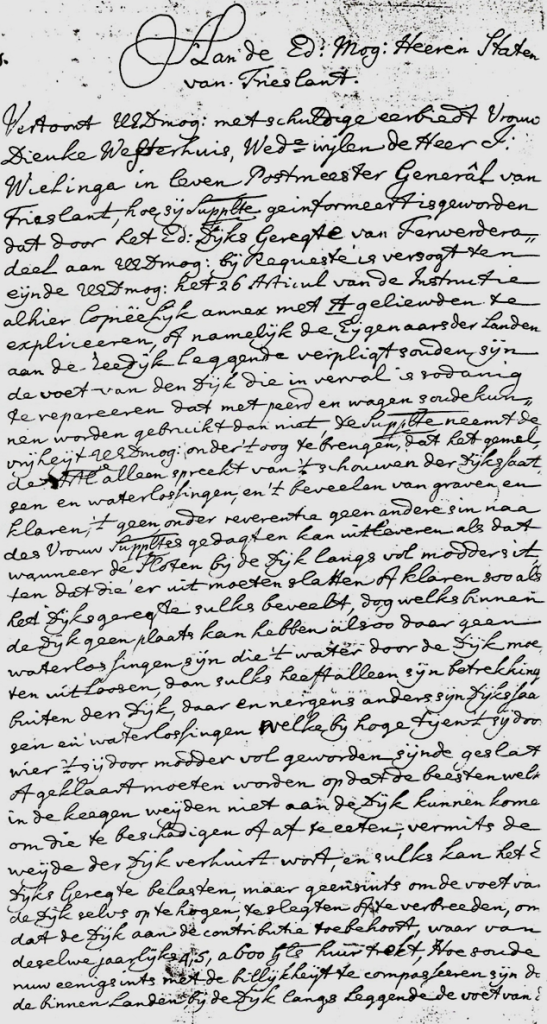 Aan de Ed: Mog: Heeren Staten
van Frieslant.
Vertoont UEDmog: met schuldige eerbiedt Vrouw
Dieuke Westerhuis, Wed=e wijlen de Heer J:
Wielinga in leven Postmeester Generâl van
Frieslant, hoe sij Supplte geinformeert is geworden
dat door het Ed: Dijks Geregte van Ferwerdera„
deel aan UEDmog: bij Requeste is versogt ten
eijnde UEDmog: het 26 Articul van de Instructie
alhier Copiëelijk annex met A geliewden te
expliceeren, of namelijk de Eijgenaars der Landen
aan de Zeedijk leggende verpligt souden sijn
de voet van den Dijk die in verval is sodanig
te repareeren dat met peerd en wagen soude kun„
nen worden gebruikt dan niet. De Supplte neemt de
vrijheijt UEDmog: onder 't oog te brengen, dat het gemel„
de alleen spreekt van 't schouwen der Dijksslaat„
sen en waterlossingen, en 't beveelen van graven en
klaren, 't geen onder reverentie geen andere sin naa
des Vrouw Suppltes gedagten kan uitleveren als dat
wanneer de Sloten bij de Dijk langs vol modder sit„
ten dat die er uit moeten slatten of klaren soo als
het Dijksgeregte sulks beveelt, dog welks binnen
de Dijk geen plaats kan hebben alsoo daar geen
waterlossingen sijn die 't water door de Dijk moe„
ten uitloosen, dan sulks heeft alleen sijn betrekking
buiten den Dijk, daar en nergens anders sijn Dijkslaa„
sen en waterlossingen welke bij hoge tijen 't sij door
wier 't sij door modder vol geworden sijnde geslat
of geklaart moeten worden op dat de beesten welke
in de keegen weijden niet aan de Dijk kunnen kome
om die te beschadigen of af te eeten, vermits de
weijde der Dijk verhuirt wort, en sulks kan het E
Dijks Geregte belasten, maar geensints om de voet va
de Dijk selvs op te hogen, te slegten of te verbreeden, om
dat de Dijk aan de contributie toebehoort, waar van
deselwe jaarlijks 4, 5, a 600 gls huir trekt, Hoe soude
nuw eenigsints met de billijkheijt te compasseeren sijn d
de binnen Landen bij de Dijk langs leggende de voet van